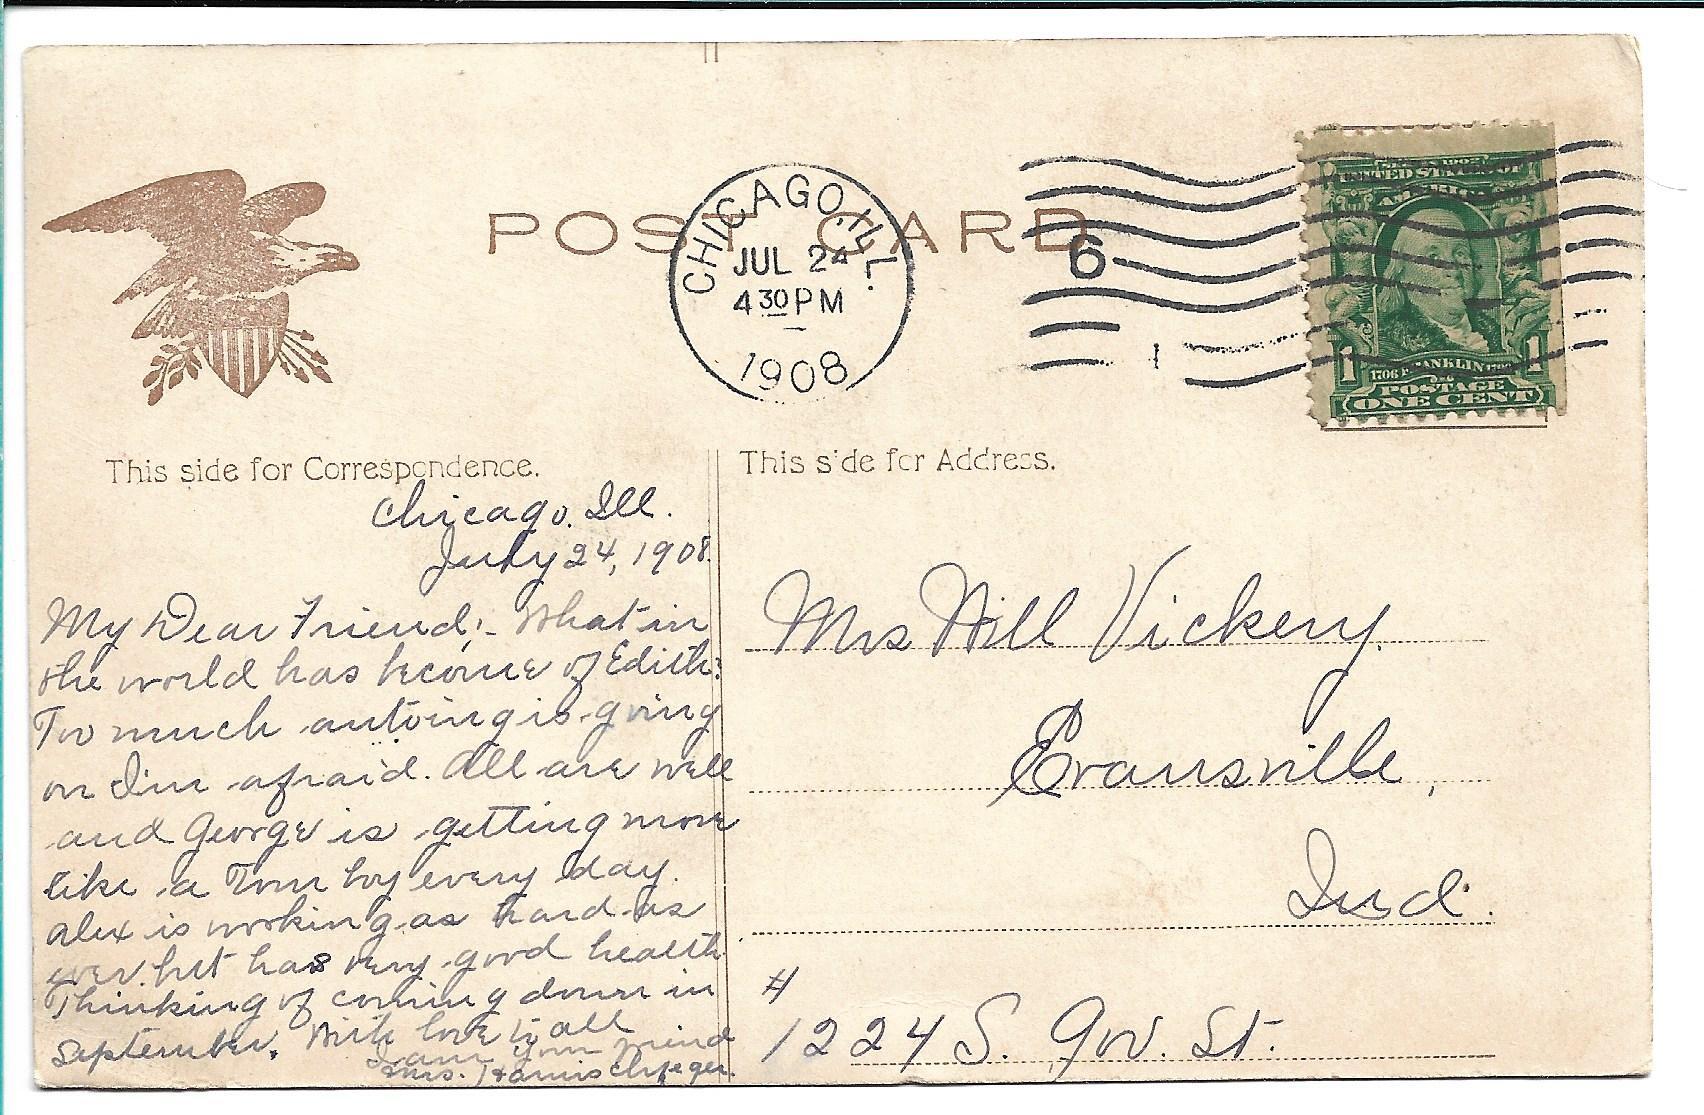 POST CARD
CHICAGO, ILL.
JUL 24
4 30 PM
1908
6
SERIES 1902
UNITED STATES OF
AMERICA
1 1
1706 FRANKLIN
POSTAGE
ONE CENT
This side for Correspondence.
Chicago. Ill.
July 24, 1908.
My Dear Friend;- What in
the world has become of Edith?
Too much autoing is going
on I'm afraid. All are well
and George is getting more
like a Tom boy every day.
Alex is working as hard as
ever but has very good health
Thinking of coming down in
September. With love to all
I am your friend
Mrs.
This side for Address.
Mrs Will Vickery.
Evansville,
Ind.
#
1224 S. Gov. St.